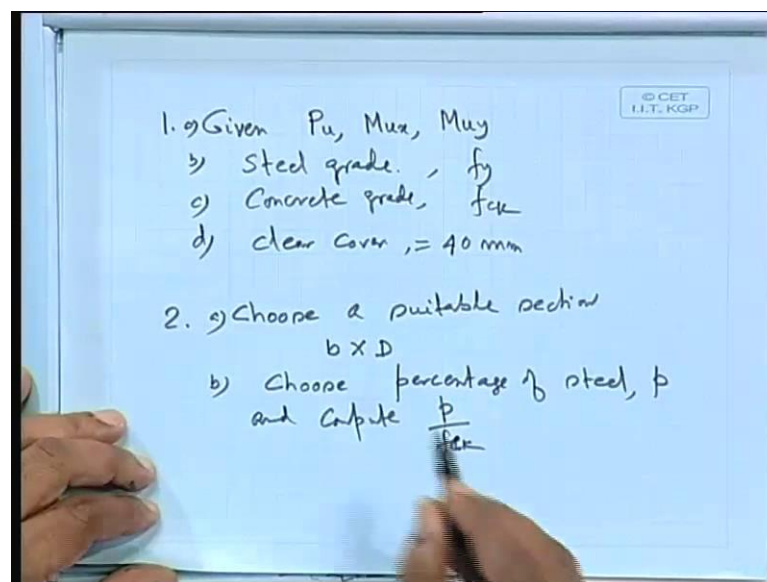 © CET
I.I.T. KGP
1. a) Given Pu, Mux, Muy
b) Steel grade. , fy
c) Concrete grade, fck
d) clear cover , = 40 mm
2. a) Choose a suitable section
b X D
b) Choose percentage of steel, p
and compute p
fck